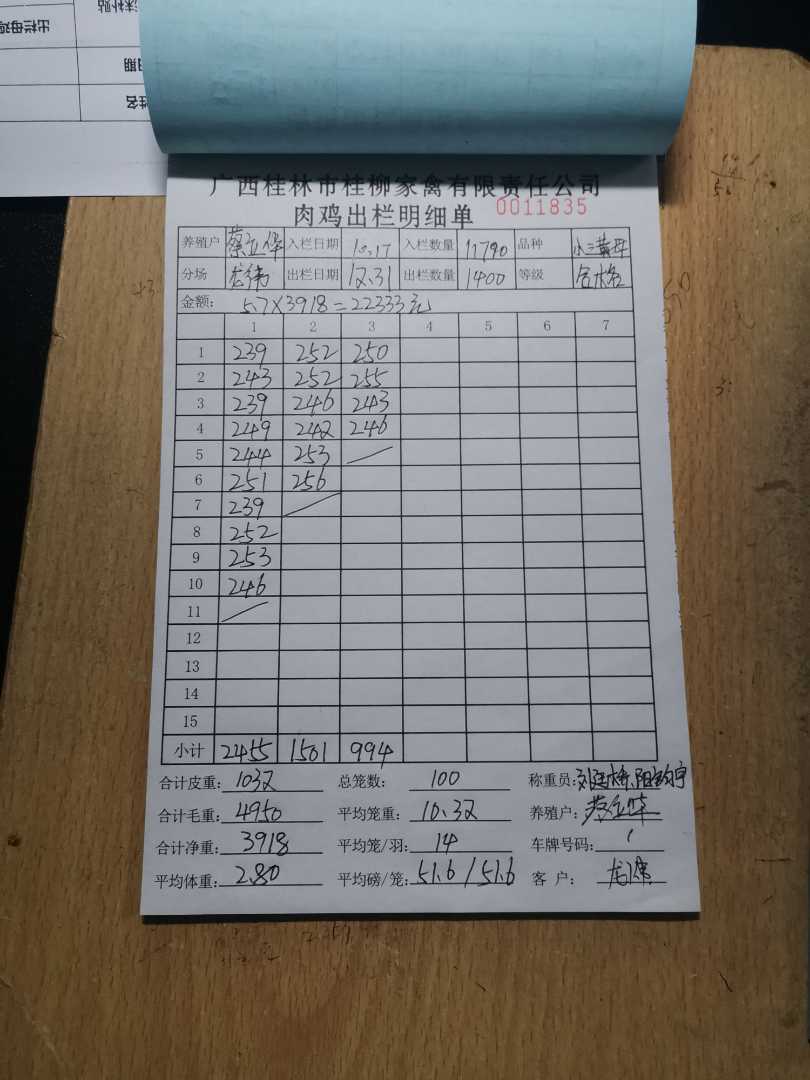 出栏母鸡
日期
姓名
广西桂林市桂柳家禽有限责任公司
肉鸡出栏明细单 0011835
养殖户 蔡亚华 入栏日期 10.17 入栏数量 11790 品种 小三黄母
分场 龙纬 出栏日期 12.31 出栏数量 1400 等级 合格
金额: 5.7×3918=22333元
1 2 3 4 5 6 7
1 239 252 250
2 243 252 255
3 239 246 243
4 249 242 246
5 244 253
6 251 256
7 239
8 252
9 253
10 246
11
12
13
14
15
小计 2455 1501 994
合计皮重: 1032 总笼数: 100 称重员:
合计毛重: 4950 平均笼重: 10.32 养殖户:
合计净重: 3918 平均笼/羽: 14 车牌号码:
平均体重: 2.80 平均磅/笼: 51.6/51.6 客户: